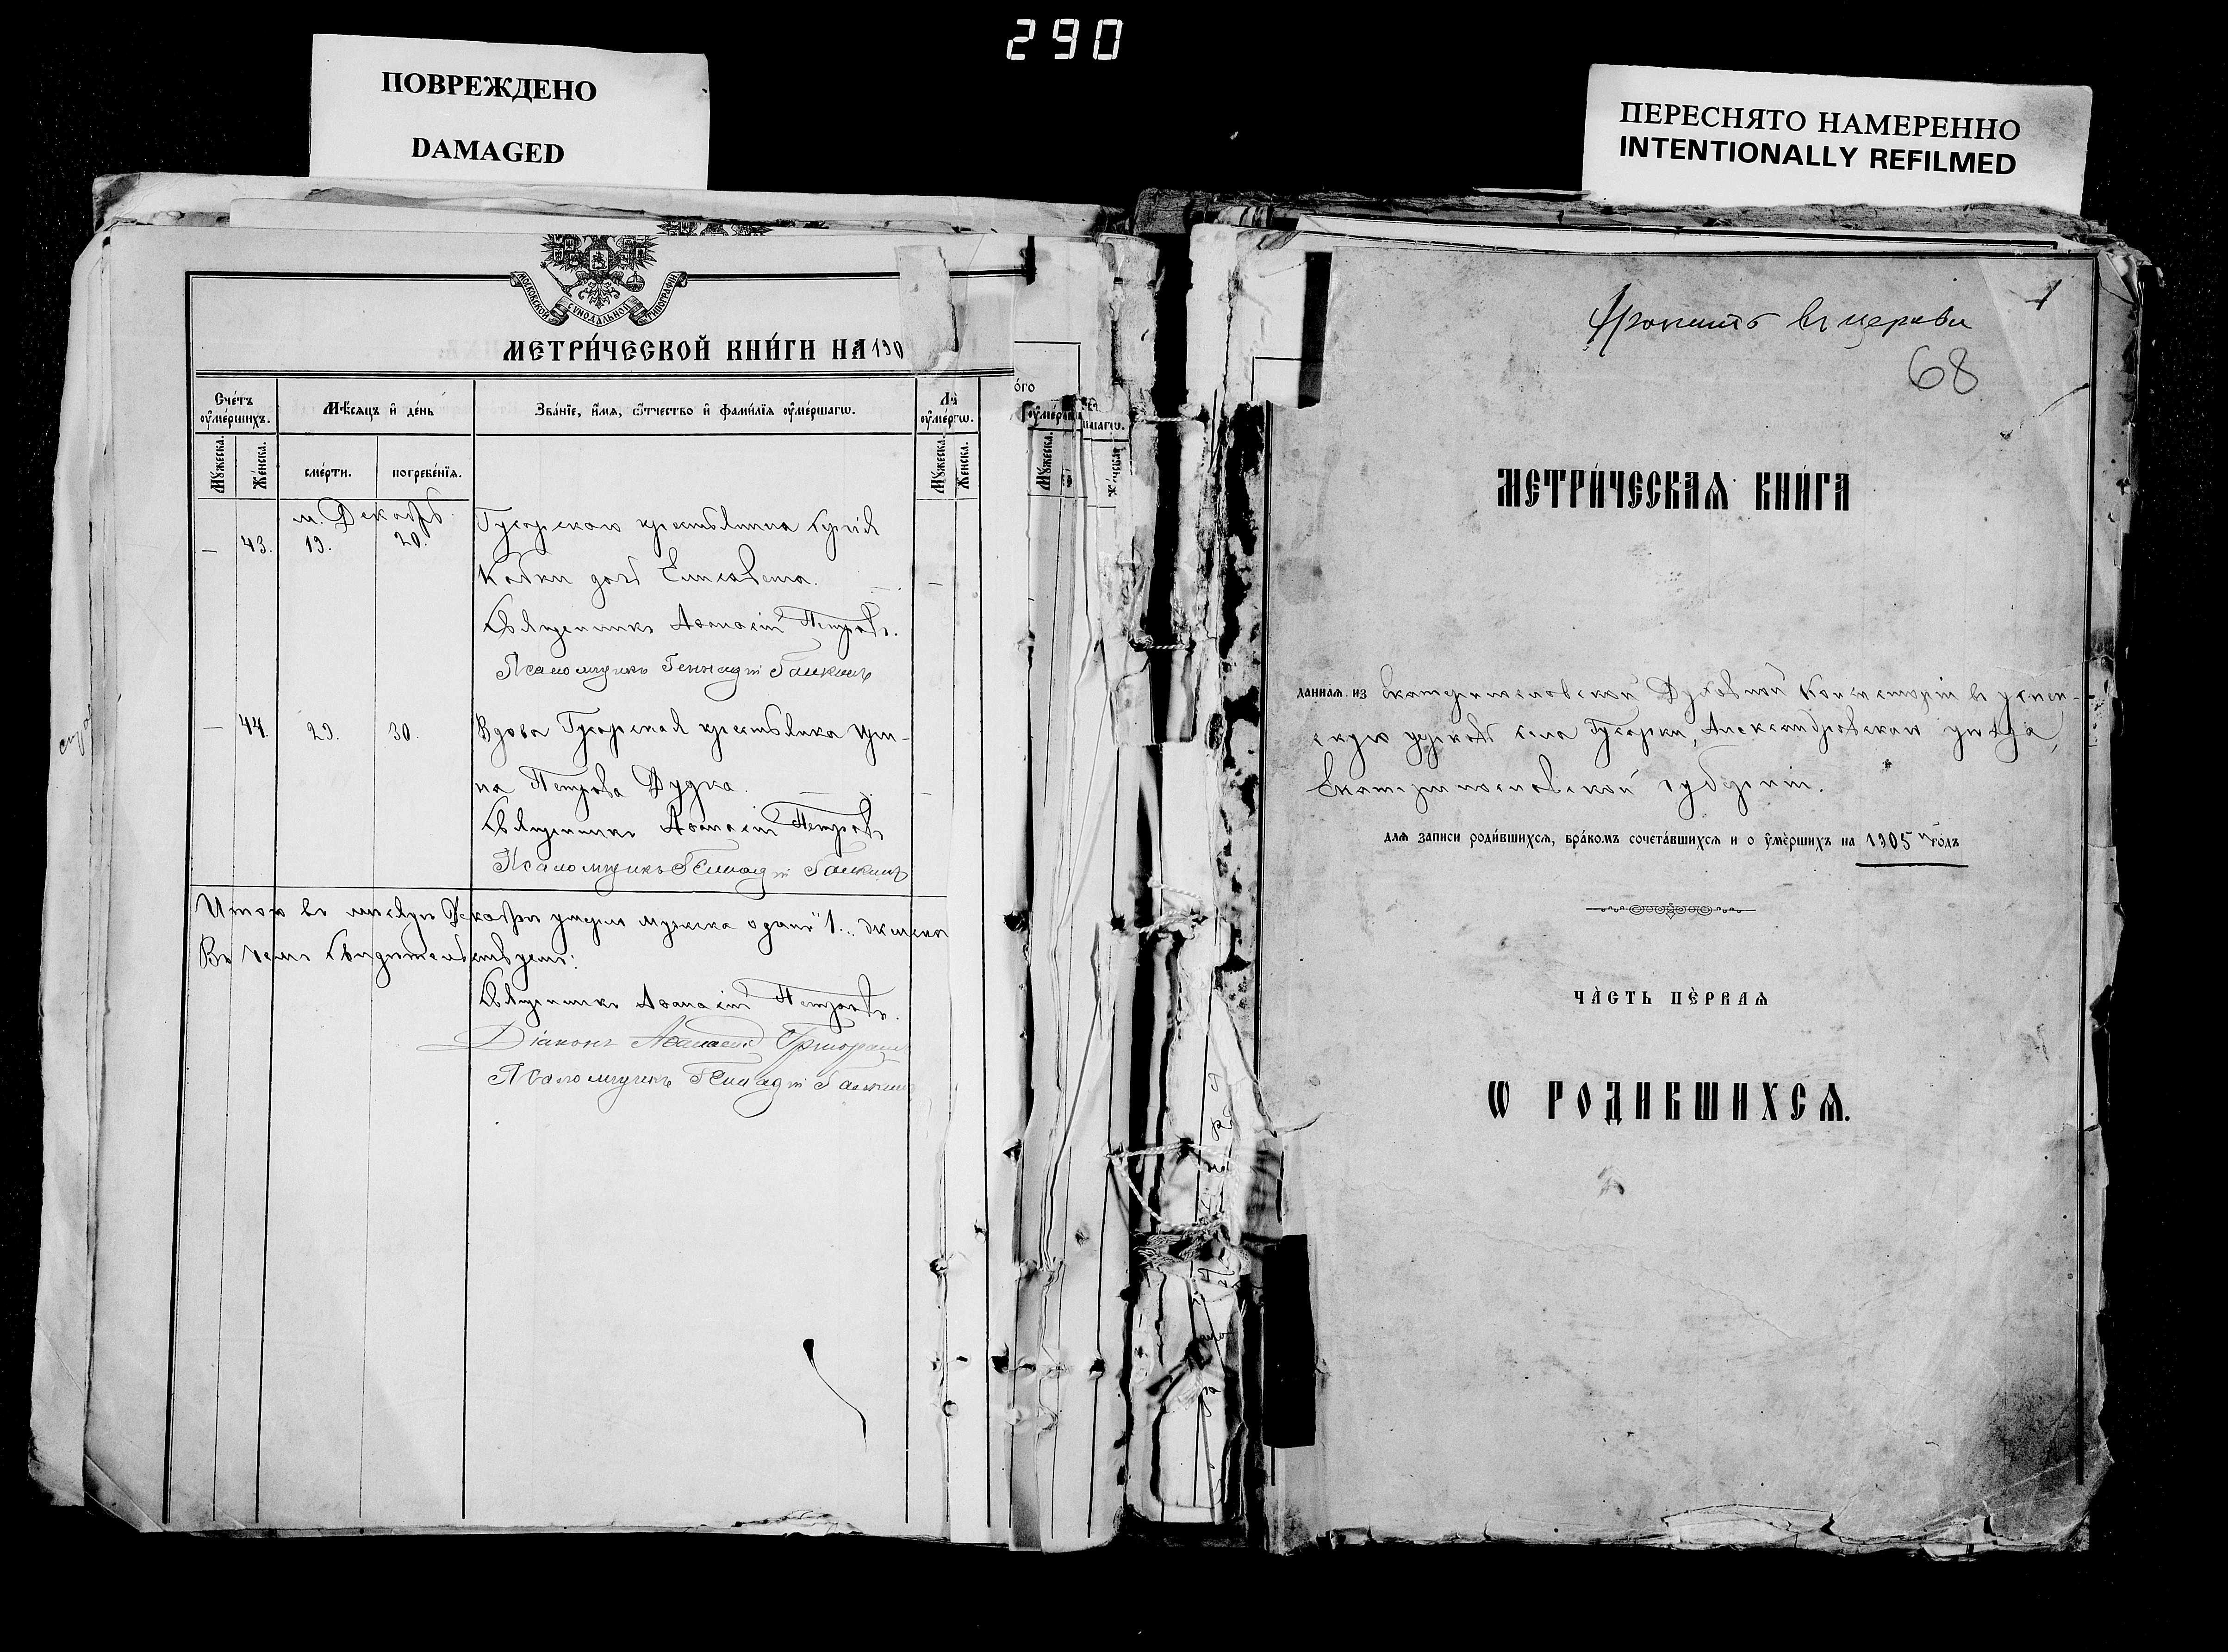 290
ПОВРЕЖДЕНО
DAMAGED
ПЕРЕСНЯТО НАМЕРЕННО
INTENTIONALLY REFILMED
МОСКОВСКОЙ СѴНОДАЛЬНОЙ ТИПОГРАФІИ
МЕТРИ́ЧЕСКОЙ КНИ́ГИ НА 190
Сче́тъ оу҆ме́ршихъ.
Мѣ́сяцъ и҆ де́нь
Зва́нїе, и҆́мя, ѻ҆́тчество и҆ фами́лїя оу҆ме́ршагѡ.
Мꙋ́жеска.
Же́нска.
сме́рти.
погребе́нїя.
Мꙋ́жеска.
Же́нска.
м. Декабрь
— 43. 19. 20. Гусарского крестьянина Сергія
Кобки дочь Елисавета.
Священникъ Аѳанасій Петровъ.
Псаломщикъ Геннадій Галкинъ
— 44. 29. 30. Вдова Гусарская крестьянка Ири-
на Петрова Дудка.
Священникъ Аѳанасій Петровъ
Псаломщикъ Генадій Галкинъ
Итого въ мѣсяцѣ Декабрѣ умерло мужеска одинъ "1" женска
Въ чемъ свидѣтельствуемъ:
Священникъ Аѳанасій Петровъ.
Діаконъ Аѳанасій
Псаломщикъ Генадій Галкинъ
1
въ церкви
68
МЕТРИ́ЧЕСКАЯ КНИ́ГА
данная из Екатеринославской Духовной Консисторіи въ Успен-
скую церковь села Гусарки, Александровскаго уѣзда,
Екатеринославской губерніи.
для записи роди́вшихся, бра́комъ сочета́вшихся и о ᲂумѐршихъ на 1905 й годъ
ЧА̀СТЬ ПЀРВАЯ
Ѡ РОДИВШИХСЯ.